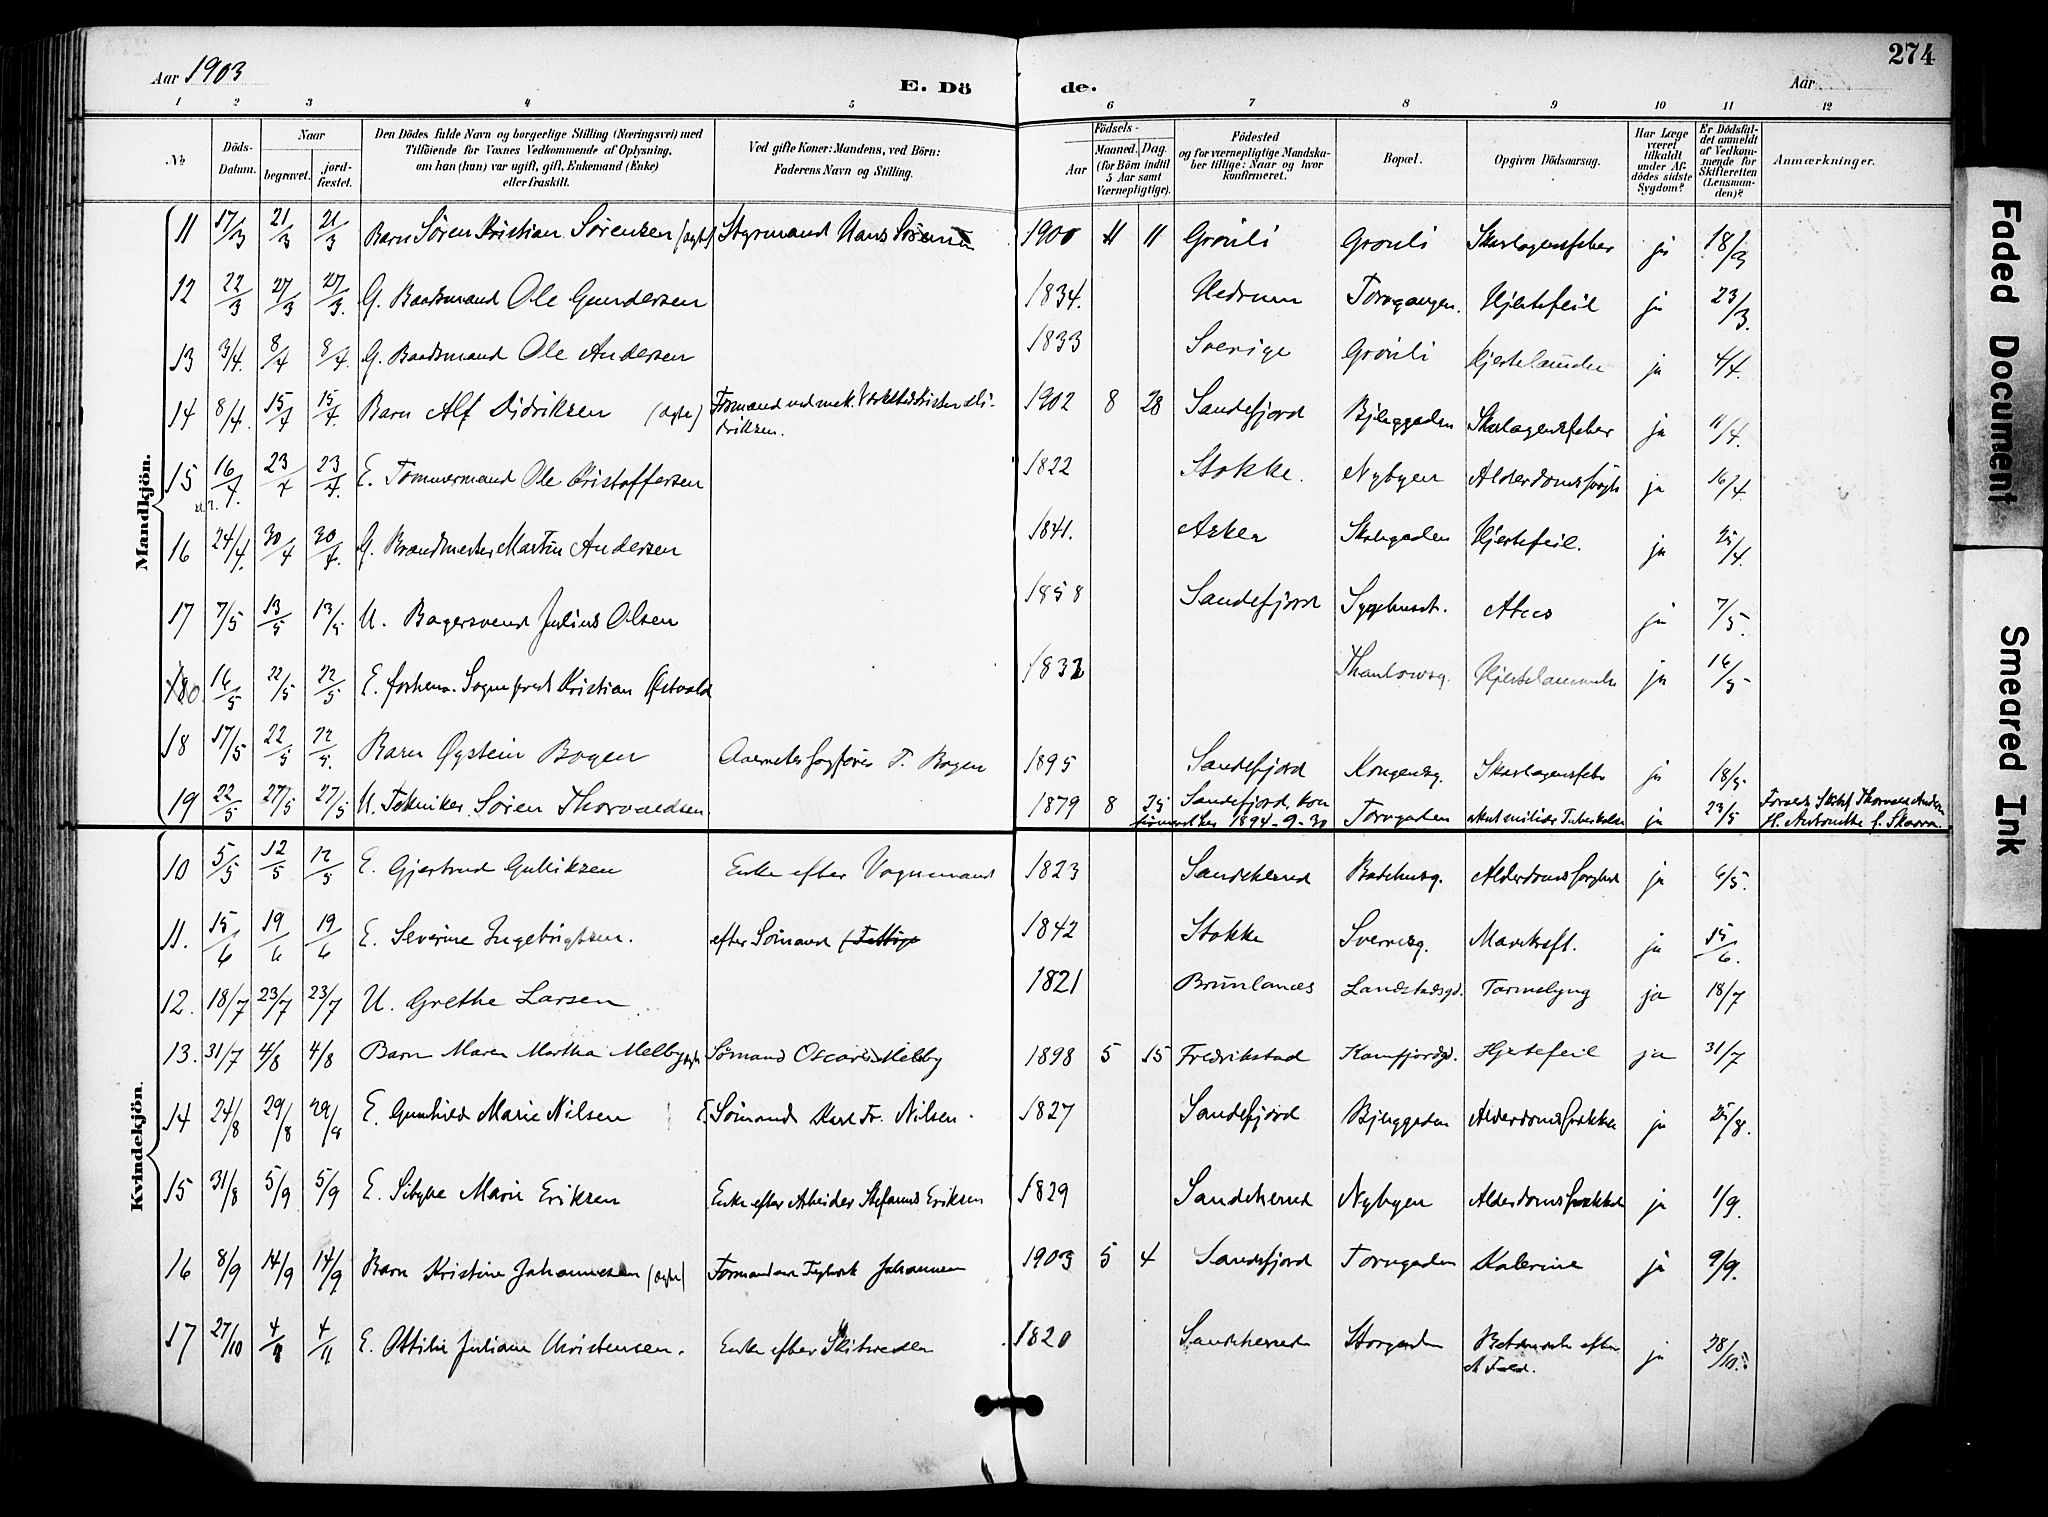 274
Aar 1903
E. Dö de.
Aar
1 2 3 4 5 6 7 8 9 10 11 12
No
Döds-Datum.
Naar
begravet.
jord-fæstet.
Den Dödes fulde Navn og borgerlige Stilling (Næringsvei) med
Tilföiende for Voxnes Vedkommende af Oplysning,
om han (hun) var ugift, gift, Enkemand (Enke)
eller fraskilt.
Ved gifte Koner: Mandens, ved Börn:
Faderens Navn og Stilling.
Födsels-
Aar
Maaned. Dag.
(for Börn indtil
5 Aar samt
Værnepligtige).
Födested
og for værnepligtige Mandska-
ber tillige: Naar og hvor
konfirmeret.
Bopæl.
Opgiven Dödsaarsag.
Har Læge
været
tilkaldt
under Af-
dödes sidste
Sygdom?
Er Dödsfal-
det anmeldt
af Vedkom-
mende for
Skifteretten
(Lensman-
den)?
Anmærkninger.
Mandkjön.
11 17/3 21/3 21/3 Barn Søren Kristian Sørensen (ægte) Styrmand Hans Sørensen 1900 11 Grønli Grønli Skarlagensfeber ja 18/3
12 22/3 27/3 27/3. G. Baadsmand Ole Gundersen 1834. Hedrum Torvgangen. Hjertefeil ja 23/3.
13 3/4. 8/4 8/4. G. Baadsmand Ole Andersen 1833 Sverige Grønli Hjertelammelse ja 4/4.
14 8/4. 15/4 15/4. Barn Alf Didriksen (ægte) Formand ved mek. Værksted Kristen Di-
driksen. 1902 8 28 Sandefjord Bjerggaden Skarlagensfeber ja 11/4.
15 16/4. 23/4 23/4. E. Tømmermand Ole Kristoffersen 1822 Stokke. Nybyen Alderdomssvagh ja 16/4.
16 24/4. 30/4 30/4. G. Brandmester Martin Andersen 1841. Asker Skolegaden Hjertefeil. ja 25/4.
17 7/5 13/5 13/5 U. Bagersvend Julius Olsen 1858 Sandefjord Sygehuset. ja 7/5.
16/5 22/5 22/5 E. forhenv. Sogneprest Kristian Østvold 1832 Thaulowsg. Hjertelammelse ja 16/5
18 17/5 22/5 22/5. Barn Øystein Bogen Overretssagfører T. Bogen 1895 Sandefjord Kongensg. Skarlagensfeb ja 18/5
19 22/5 27/5 27/5 U. Tekniker Søren Thorvaldsen 1879 8 25 Sandefjord, kon
firmeret 1894-9-30 Torvgaden akut miliær Tuberkulose ja 23/5 Foræld. Skibsf. Thorvald Andersen
H. Antonette f. Skarra.
Kvindekjön.
10 5/5 12/5 12/5 E. Gjertrud Gulliksen Enke efter Vognmand 1823 Sandeherred Badehusg. Alderdomssvaghed ja 6/5.
11. 15/6 19/6 19/6 E. Severine Ingebrigtsen. efter Sømand 1842 Stokke Sverresg. Mavekræft. ja 15/6.
12. 18/7 23/7 23/7 U. Grethe Larsen 1821 Brunlanes Landstadsgd. Tarmslyng ja 18/7
13. 31/7 4/8 4/8 Barn Maren Martha Melby ægte Sømand Oscar Melby 1898 5 15 Fredrikstad Kamfjordgd. Hjertefeil ja 31/7
14 24/8 29/8 29/8 E. Gunhild Marie Nilsen E. Sømand Karl Fr. Nilsen. 1827 Sandefjord Bjerggaden Alderdomssvækkelse ja 25/8.
15 31/8 5/9 5/9 E. Sibylle Marie Eriksen Enke efter Arbeider Stefanus Eriksen 1829 Sandeherred Nybyen Alderdomssvækkelse ja 1/9.
16 8/9 14/9 14/9 Barn Kristine Johannessen (ægte) Formand Teglverk Johannessen 1903 5 4 Sandefjord Torvgaden Kolerine ja 9/9.
17 27/10 4/11 4/11 E. Ottilie Juliane Christensen. Enke efter Skibsreder 1820 Sandeherred Storgaden Betændelse efter
et Fald. ja 28/10.
Faded Document
Smeared Ink